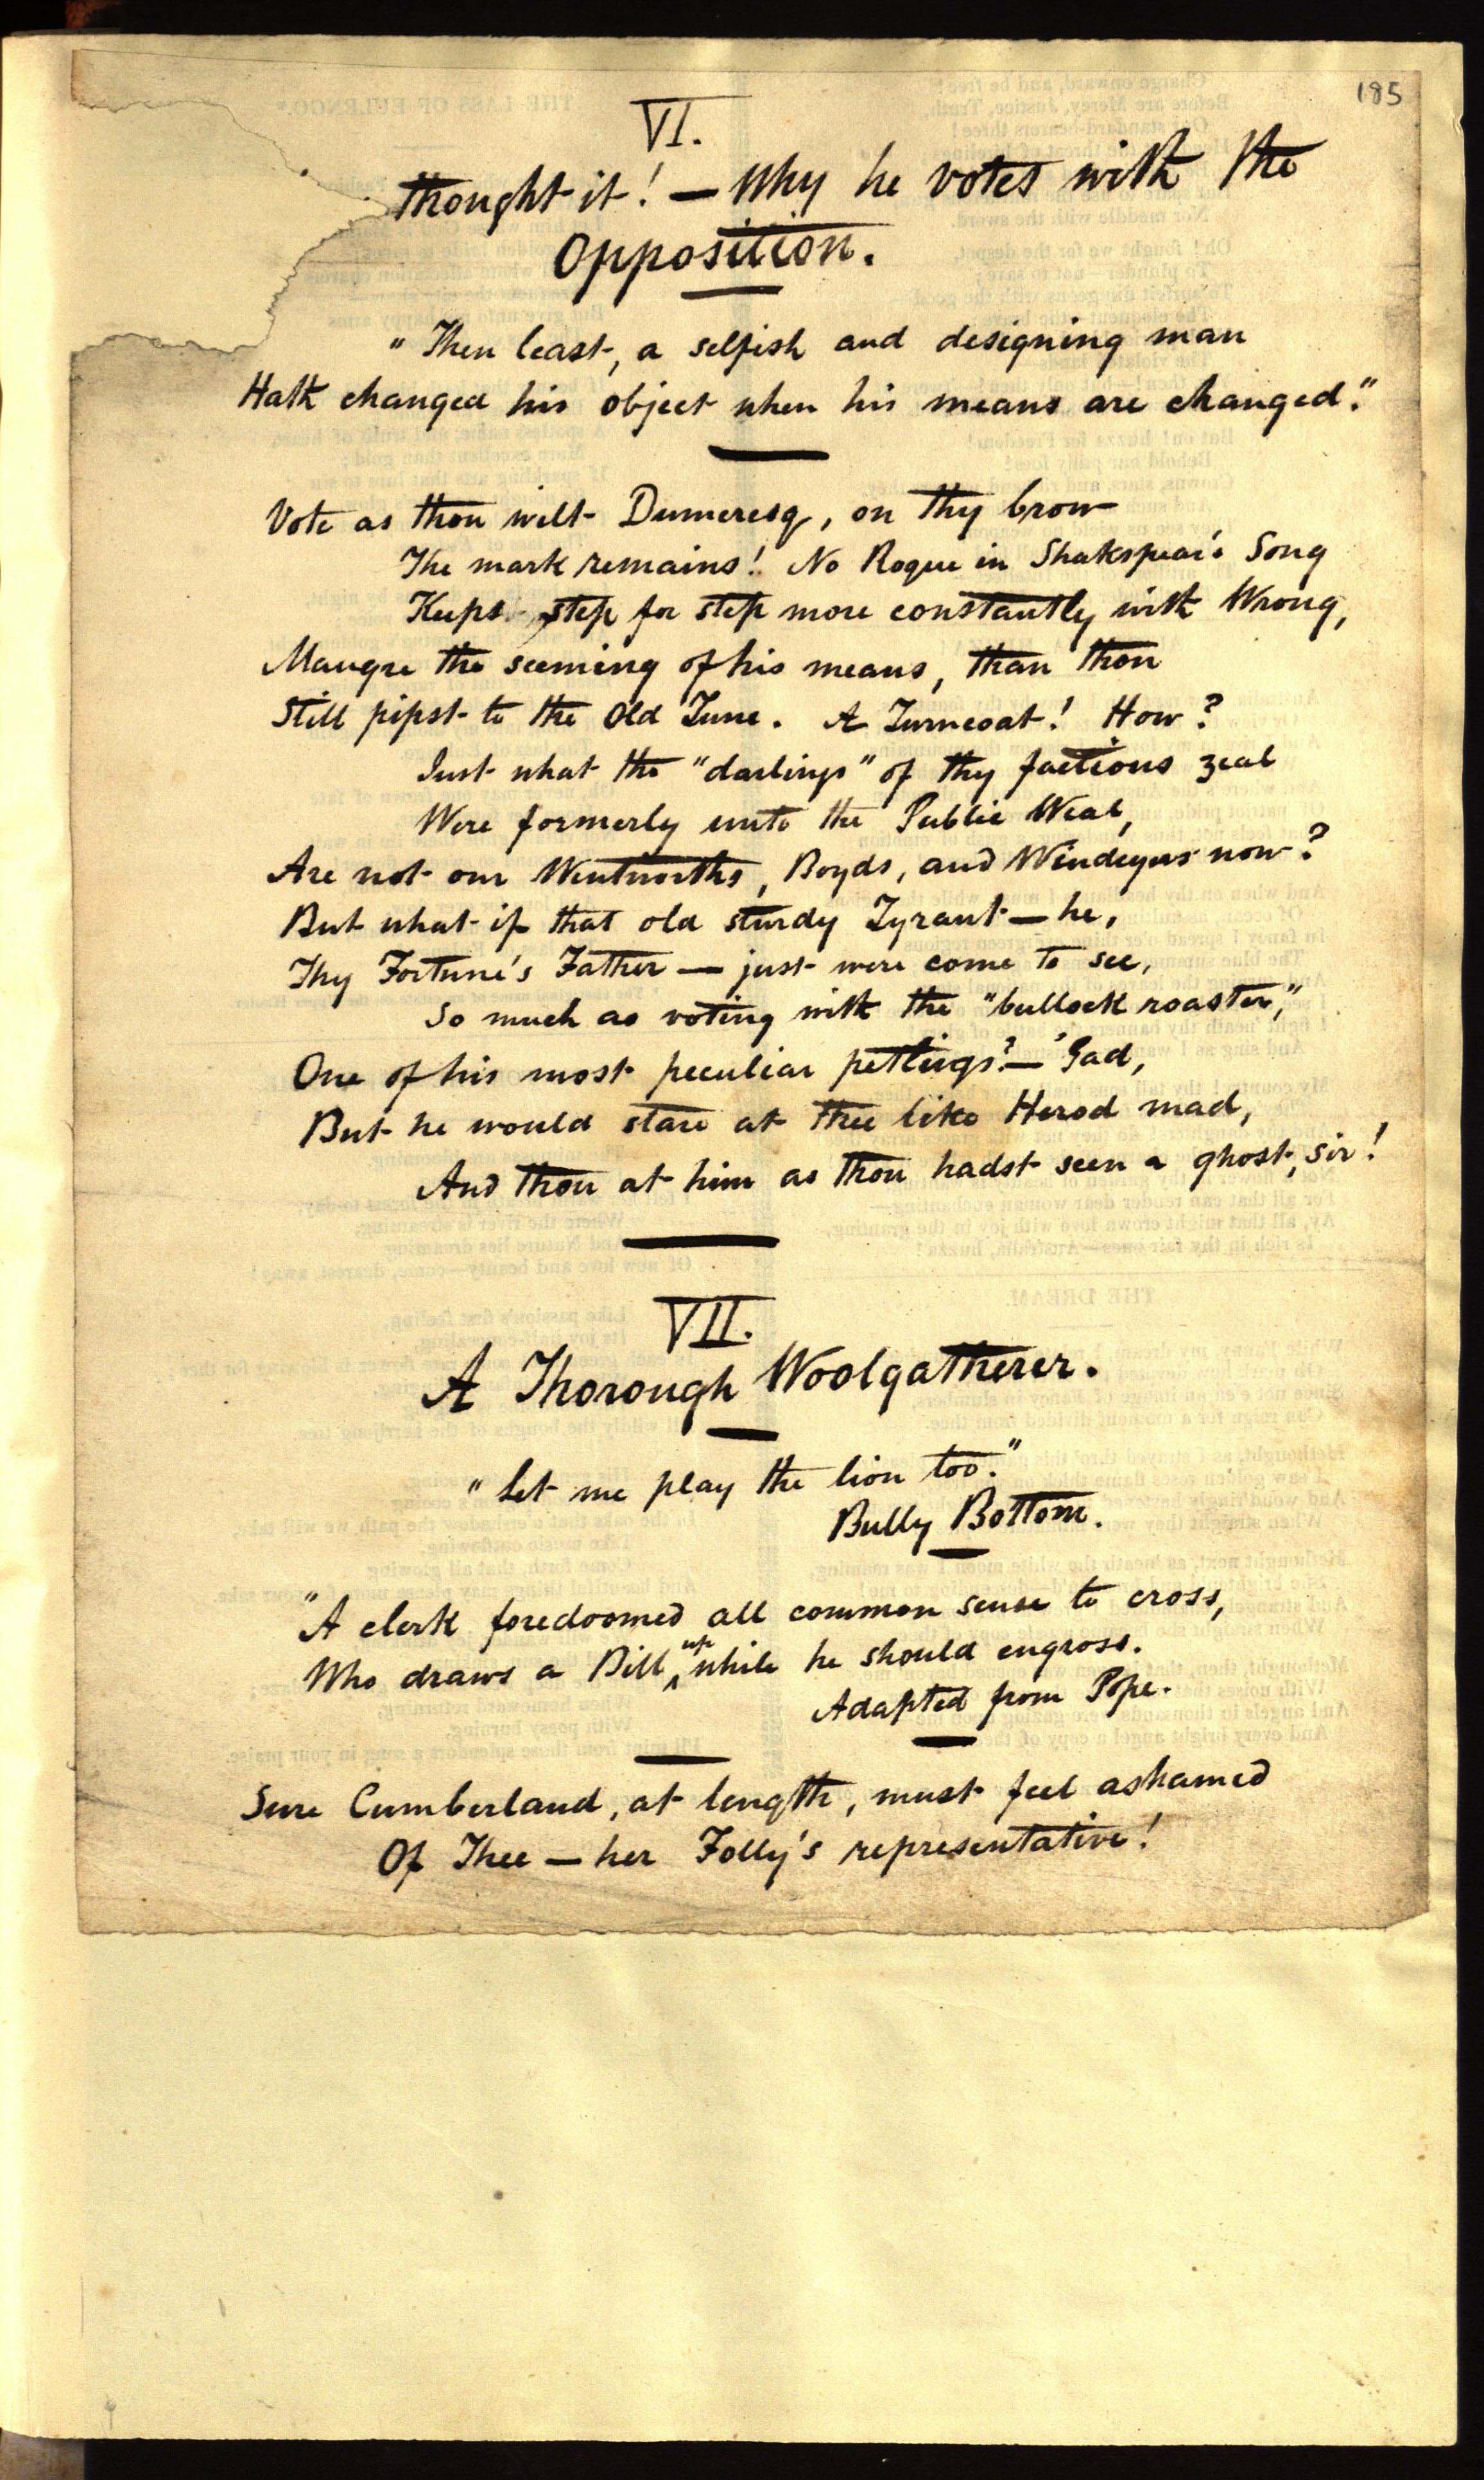 185
VI.
thought it! — Why he votes with the
Opposition.
"Then least, a selfish and designing man
Hath changed his object when his means are changed."
Vote as thou wilt Dumeresq, on thy brow
The mark remains! No Rogue in Shakspear's Song
Keeps step for step more constantly with Wrong,
Maugre the seeming of his means, than thou
Still pipst to the Old Tune. A Turncoat! How?
Just what the "darlings" of thy factious zeal
Were formerly unto the Public Weal,
Are not our Wentworths, Boyds, and Windeyers now?
But what if that old sturdy Tyrant — he,
Thy Fortune's Father — just were come to see,
So much as voting with the "bullock roaster,"
One of his most peculiar petlings? — 'Gad,
But he would stare at thee like Herod mad,
And thou at him as thou hadst seen a ghost, sir!
VII.
A Thorough Woolgatherer.
"Let me play the lion too."
Bully Bottom.
"A clerk foredoomed all common sense to cross,
Who draws a Bill up while he should engross.
Adapted from Pope.
Sure Cumberland, at length, must feel ashamed
Of Thee — her Folly's representative!